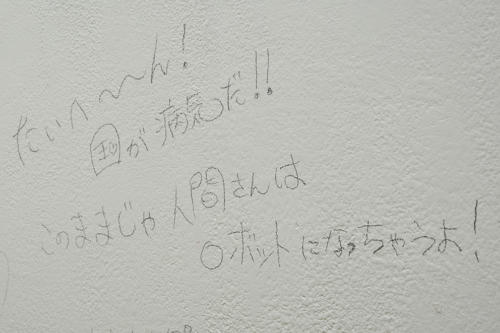 たいへ〜〜ん!
国が病気だ!!
このままじゃ人間さんは
ロボットになっちゃうよ!